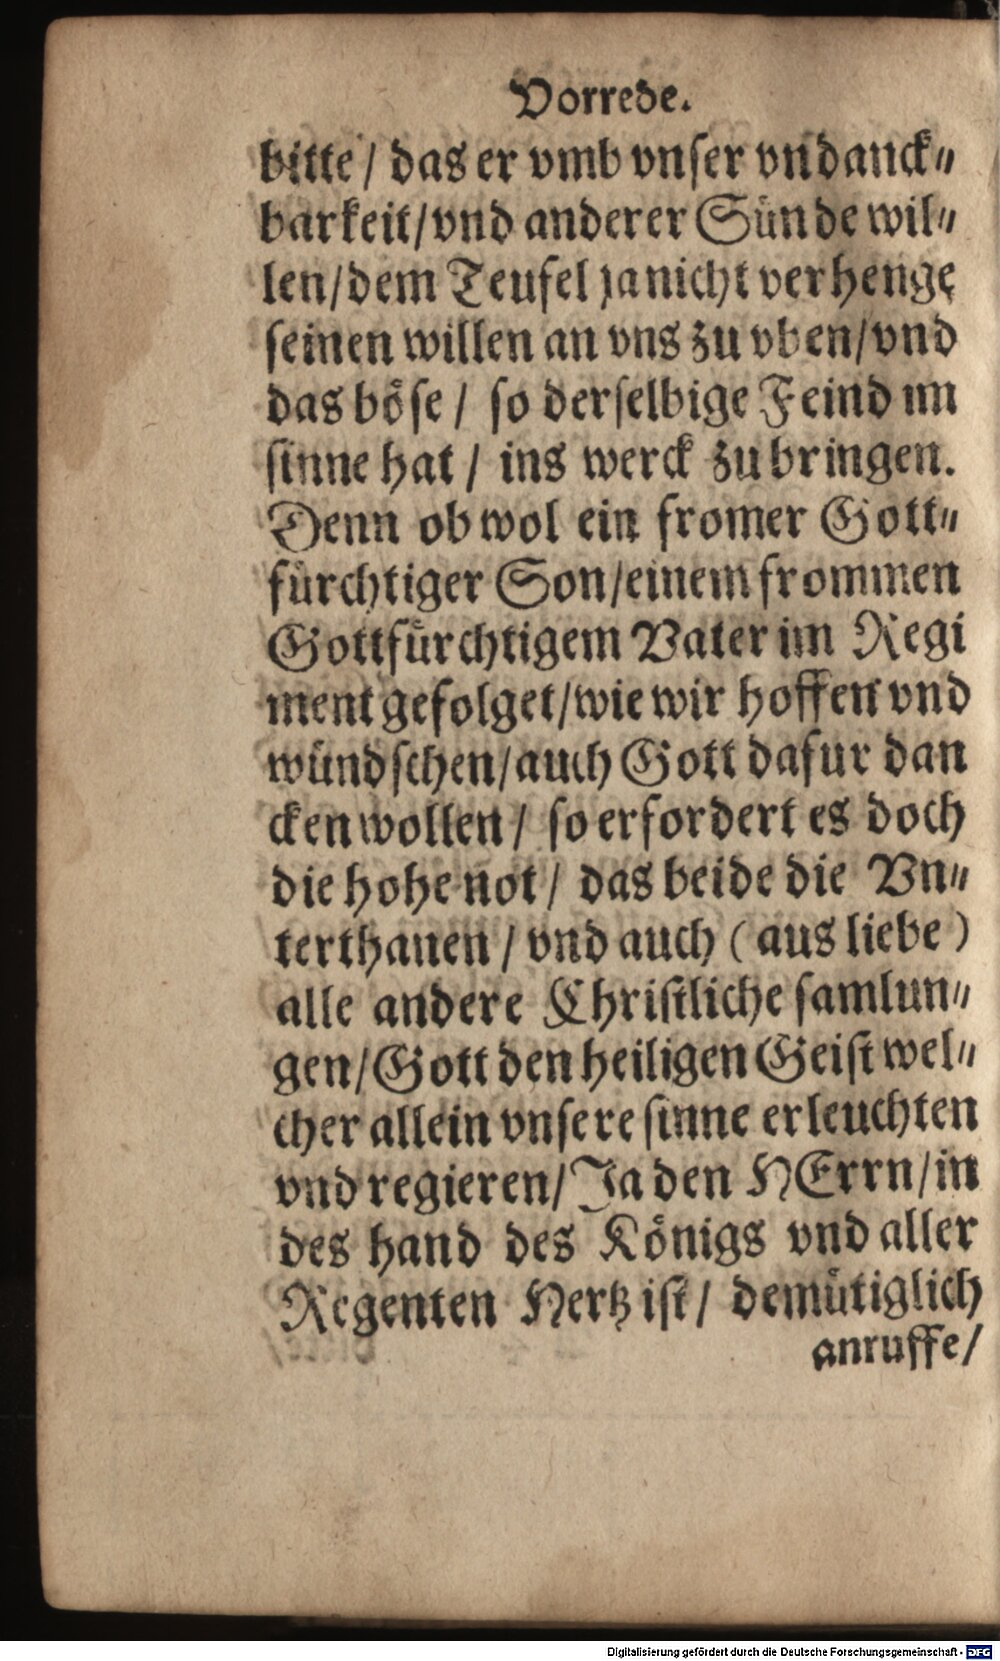 Vorrede.
bitte / das er vmb vnser vndanck⸗
barkeit/vnd anderer Sünde wil⸗
len/dem Teufel ja nicht verhenge
seinen willen an vns zu vben/vnd
das böse / so derselbige Feind im
sinne hat / ins werck zu bringen.
Denn ob wol ein fromer Gott⸗
fürchtiger Son/einem frommen
Gottfürchtigem Vater im Regi
ment gefolget/wie wir hoffen vnd
wündschen/auch Gott dafur dan
cken wollen / so erfordert es doch
die hohe not / das beide die Vn⸗
terthanen / vnd auch (aus liebe)
alle andere Christliche samlun⸗
gen/Gott den heiligen Geist wel⸗
cher allein vnsere sinne erleuchten
vnd regieren/Ja den HErrn/in
des hand des Königs vnd aller
Regenten Hertz ist / demütiglich
anruffe/
Digitalisierung gefördert durch die Deutsche Forschungsgemeinschaft - DFG